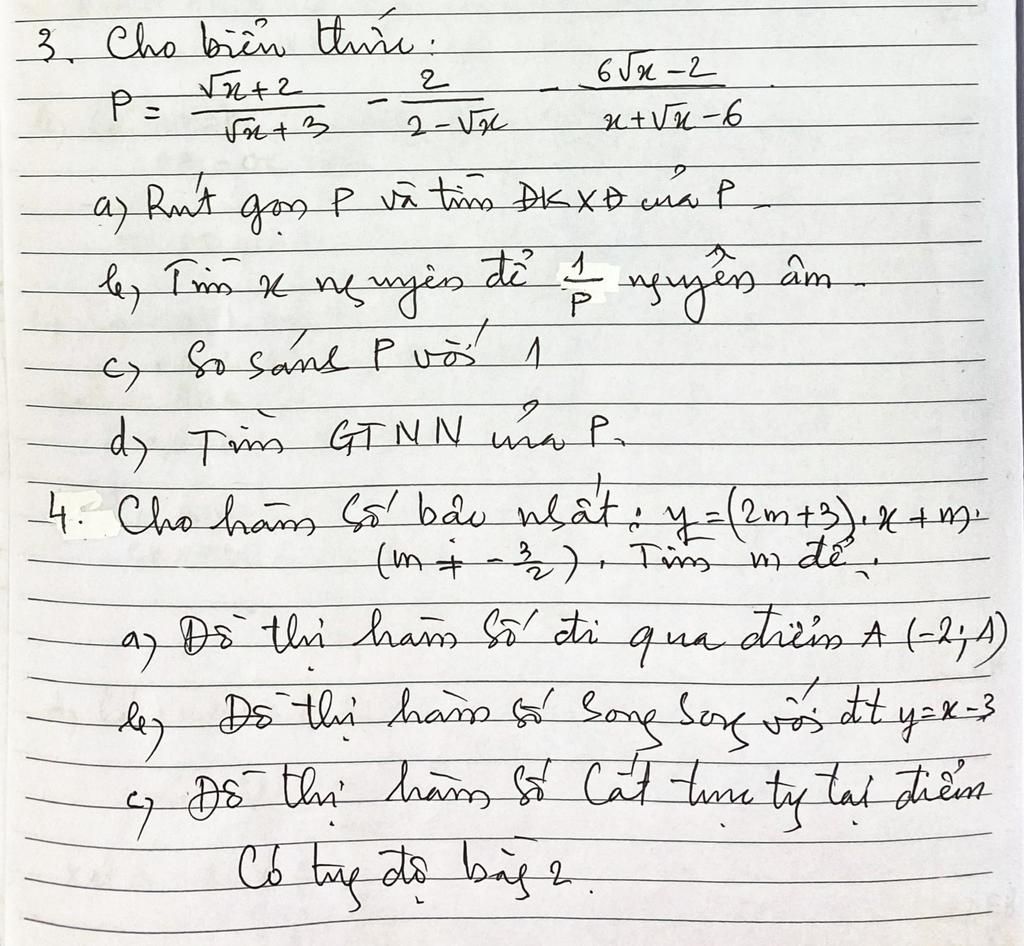 3. Cho biển thức:
P = \frac{\sqrt{x}+2}{\sqrt{x}+3} - \frac{2}{2-\sqrt{x}} - \frac{6\sqrt{x}-2}{x+\sqrt{x}-6}
a) Rút gọn P và tìm ĐKXĐ của P.
b) Tìm x nguyên để \frac{1}{P} nguyên âm.
c) So sánh P với 1
d) Tìm GTNN của P.
4. Cho hàm số bậc nhất: y=(2m+3).x+m.
(m ≠ -\frac{3}{2}). Tìm m để:
a) Đồ thị hàm số đi qua điểm A (-2; 1)
b) Đồ thị hàm số song song với đt y=x-3
c) Đồ thị hàm số cắt trục ty tại điểm
Có tug độ bằg 2.